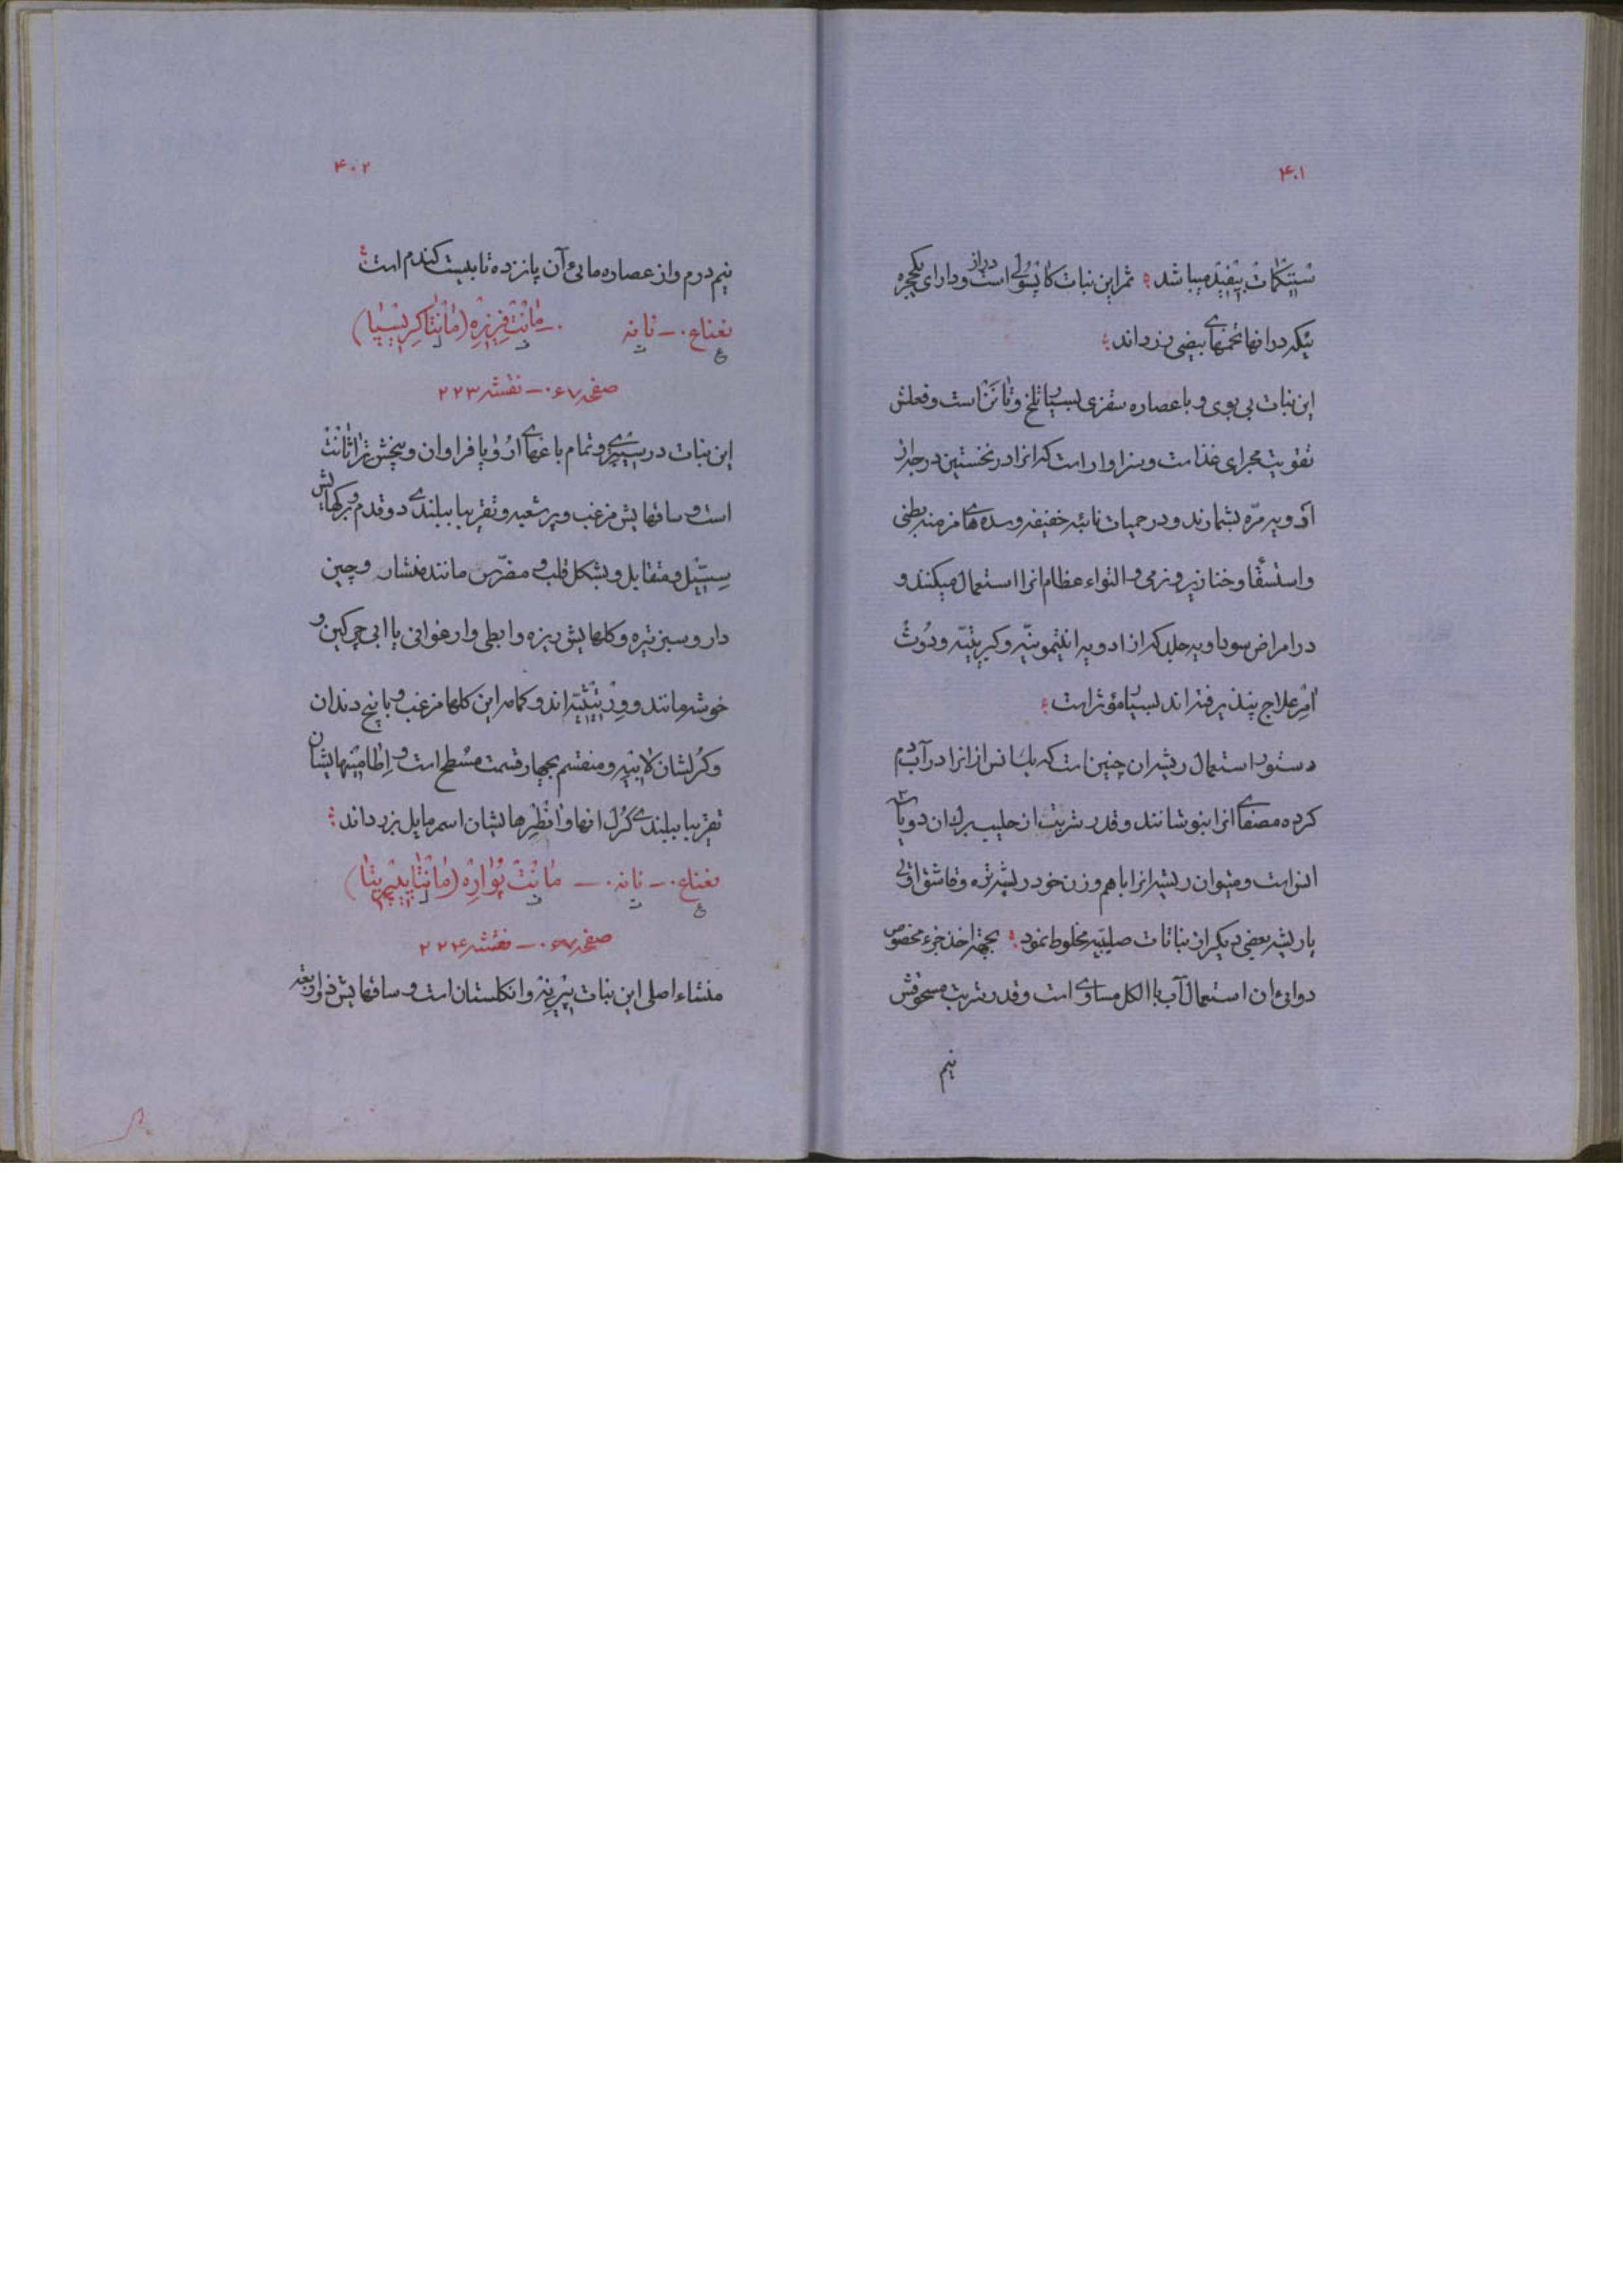 ۴۰۱
ستیگمات بیفید میباشد؛ ثمر این نبات کاپسولی است دراز و دارای یکحجره
ئیکه در انها تخمهای بیضی زرداند؛
این نبات بی بوی و با عصاره سفزی بسیار تلخ و تانن است و فعلش
تقویت مجرای غذا است و سزاوار است که انرا در نخستین درجه از
ادویه مرّه بشمارند و در حمیات نائبه خفیفه و سده های مزمنه بطنی
و استسقا و خنازیر و نرمی و التواء عظام انرا استعمال میکنند و
در امراض سوداویه جلد که از ادویه انتیمونیّه و کبریتیّه و دوث
امر علاج پذیر رفته اند بسیار مؤثر است؛
دستور استعمال ریشه ان چنین است که یک انس از انرا در آب دم
کرده مصفای انرا بنوشانند و قدر شربت از حلیب برک ان دو یا ۳
انس است و میتوان ریشه انرا با هم وزن خود ریشه تره و قاشق اوقی
یا ریشه بعضی دیکر از نباتات صلیبّیه مخلوط نمود؛ بجهة اخذ جزء مخصوص
دوائی ان استعمال آب با الکل مساوی است و قدر شربت مسحوقش
نیم
۴۰۲
نیم درم و از عصاره مائی آن پانزده تا بیست کندم است؛
نعناع ۰— نانه ۰— مانت فریزه (مانتا کریسپا)
ع ت ف ل
صفحه ۶۷ ۰— نقشه ۲۲۳
این نبات در سیبری و تمام باغهای اروپا فراوان و بیخش تراثانت
است و ساقهایش مزغب و پر شعبه و تقریبا ببلندی دو قدم و برکهایش
سسّیل و متقابل و بشکل قلب و مضرّس مانند منشار و چین
دار و سبز تیره و کلهایش ریزه و ابطی و ارغوانی یا ابی چرکین و
خوشه مانند و ورتیئیه اند و کاسه این کلها مزغب و با پنج دندان
و کرلشان لابیّیه و منقسم بچهار قسمت مسطح است و اطامینهایشان
تقریبا ببلندی کرل انها و انطرهایشان اسمر مایل بزرد اند؛
نعناع ۰— نانه ۰— مانت پواره (مانتا پیپریتا)
ع ت ف ل
صفحه ۶۷ ۰— نقشه ۲۲۴
منشاء اصلی این نبات پیرینه و انکلستان است و ساقهایش ذواربعه